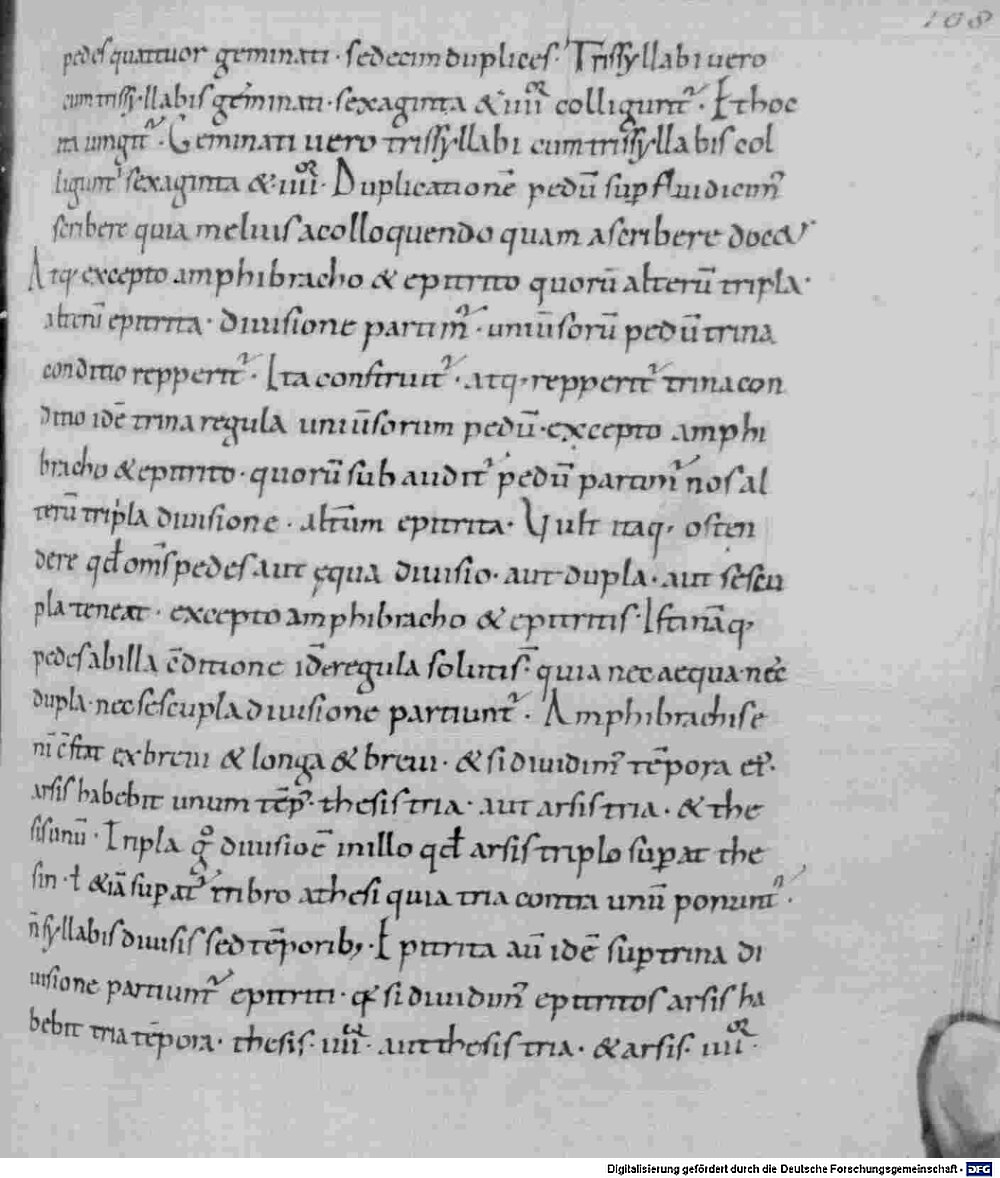 108
pedes quattuor geminati · sedecim duplices · Trissyllabi uero
cum trissyllabis geminati · sexaginta & iiii^or colligunt᷑ · Et hoc
ita iungit᷑ · Geminati uero trissyllabi cum trissyllabis col
ligunt᷑ sexaginta & iiii^or · Duplicationē pedū
scribere quia melius a colloquendo quam a scribere doc&᷑
Atq; excepto amphibracho & epitrito quorū alterū tripla ·
alterū epitrita · diuisione partim᷑ · uniūsorū pedū trina
conditio repperit᷑ · Ita construit᷑ · atq; repperit᷑ trina con
ditio idē trina regula uniūsorum pedū · excepto amphi
bracho & epitrito · quorū subaudit᷑ pedū partim᷑ nos al
terū tripla diuisione · altūm epitrita · Vult itaq; osten
dere qđ om̄s pedes aut ęqua diuisio · aut dupla · aut sescu
pla teneat · excepto amphibracho & epitritis · Istināq;
pedes ab illa c̄ditione idē regula soluti s̄ quia nec aequa nec
dupla · nec sescupla diuisione partiunt᷑ · Amphibrachi se
ni c̄stat ex breui & longa & breui · & si diuidim᷒ tēpora ei᷒ ·
arsis habebit unum tēp᷒ · thesis tria · aut arsis tria · & the
sis unū · Tripla g° diuisio ē in illo qđ arsis triplo sup̲at the
sin · ł &iā sup̲at᷑ athesi quia tria contra unū ponunt᷑ ·
n̄ syllabis diuisis sed tēporib; · Epitrita aū idē sup̲ trina di
uisione partiunt᷑ epitriti · q̲ si diuidim᷒ epitritos arsis ha
bebit tria tēpora · thesis · iiii^or · aut thesis tria · & arsis · iiii^or ·
Digitalisierung gefördert durch die Deutsche Forschungsgemeinschaft - DFG